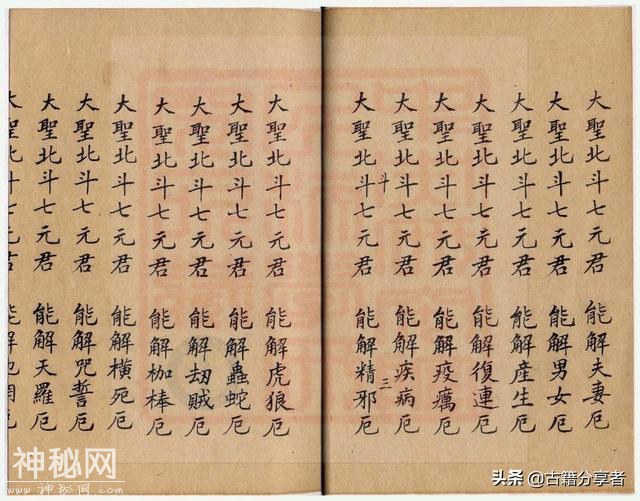 大聖北斗七元君 能解夫妻厄
大聖北斗七元君 能解男女厄
大聖北斗七元君 能解産生厄
大聖北斗七元君 能解復連厄
大聖北斗七元君 能解疫癘厄
大聖北斗七元君 能解疾病厄
斗 三
大聖北斗七元君 能解精邪厄
大聖北斗七元君 能解虎狼厄
大聖北斗七元君 能解蟲蛇厄
大聖北斗七元君 能解劫賊厄
大聖北斗七元君 能解枷棒厄
大聖北斗七元君 能解橫死厄
大聖北斗七元君 能解咒誓厄
大聖北斗七元君 能解天羅厄
大聖北斗七元君 能解地網厄
神秘网
头条 @古籍分享者